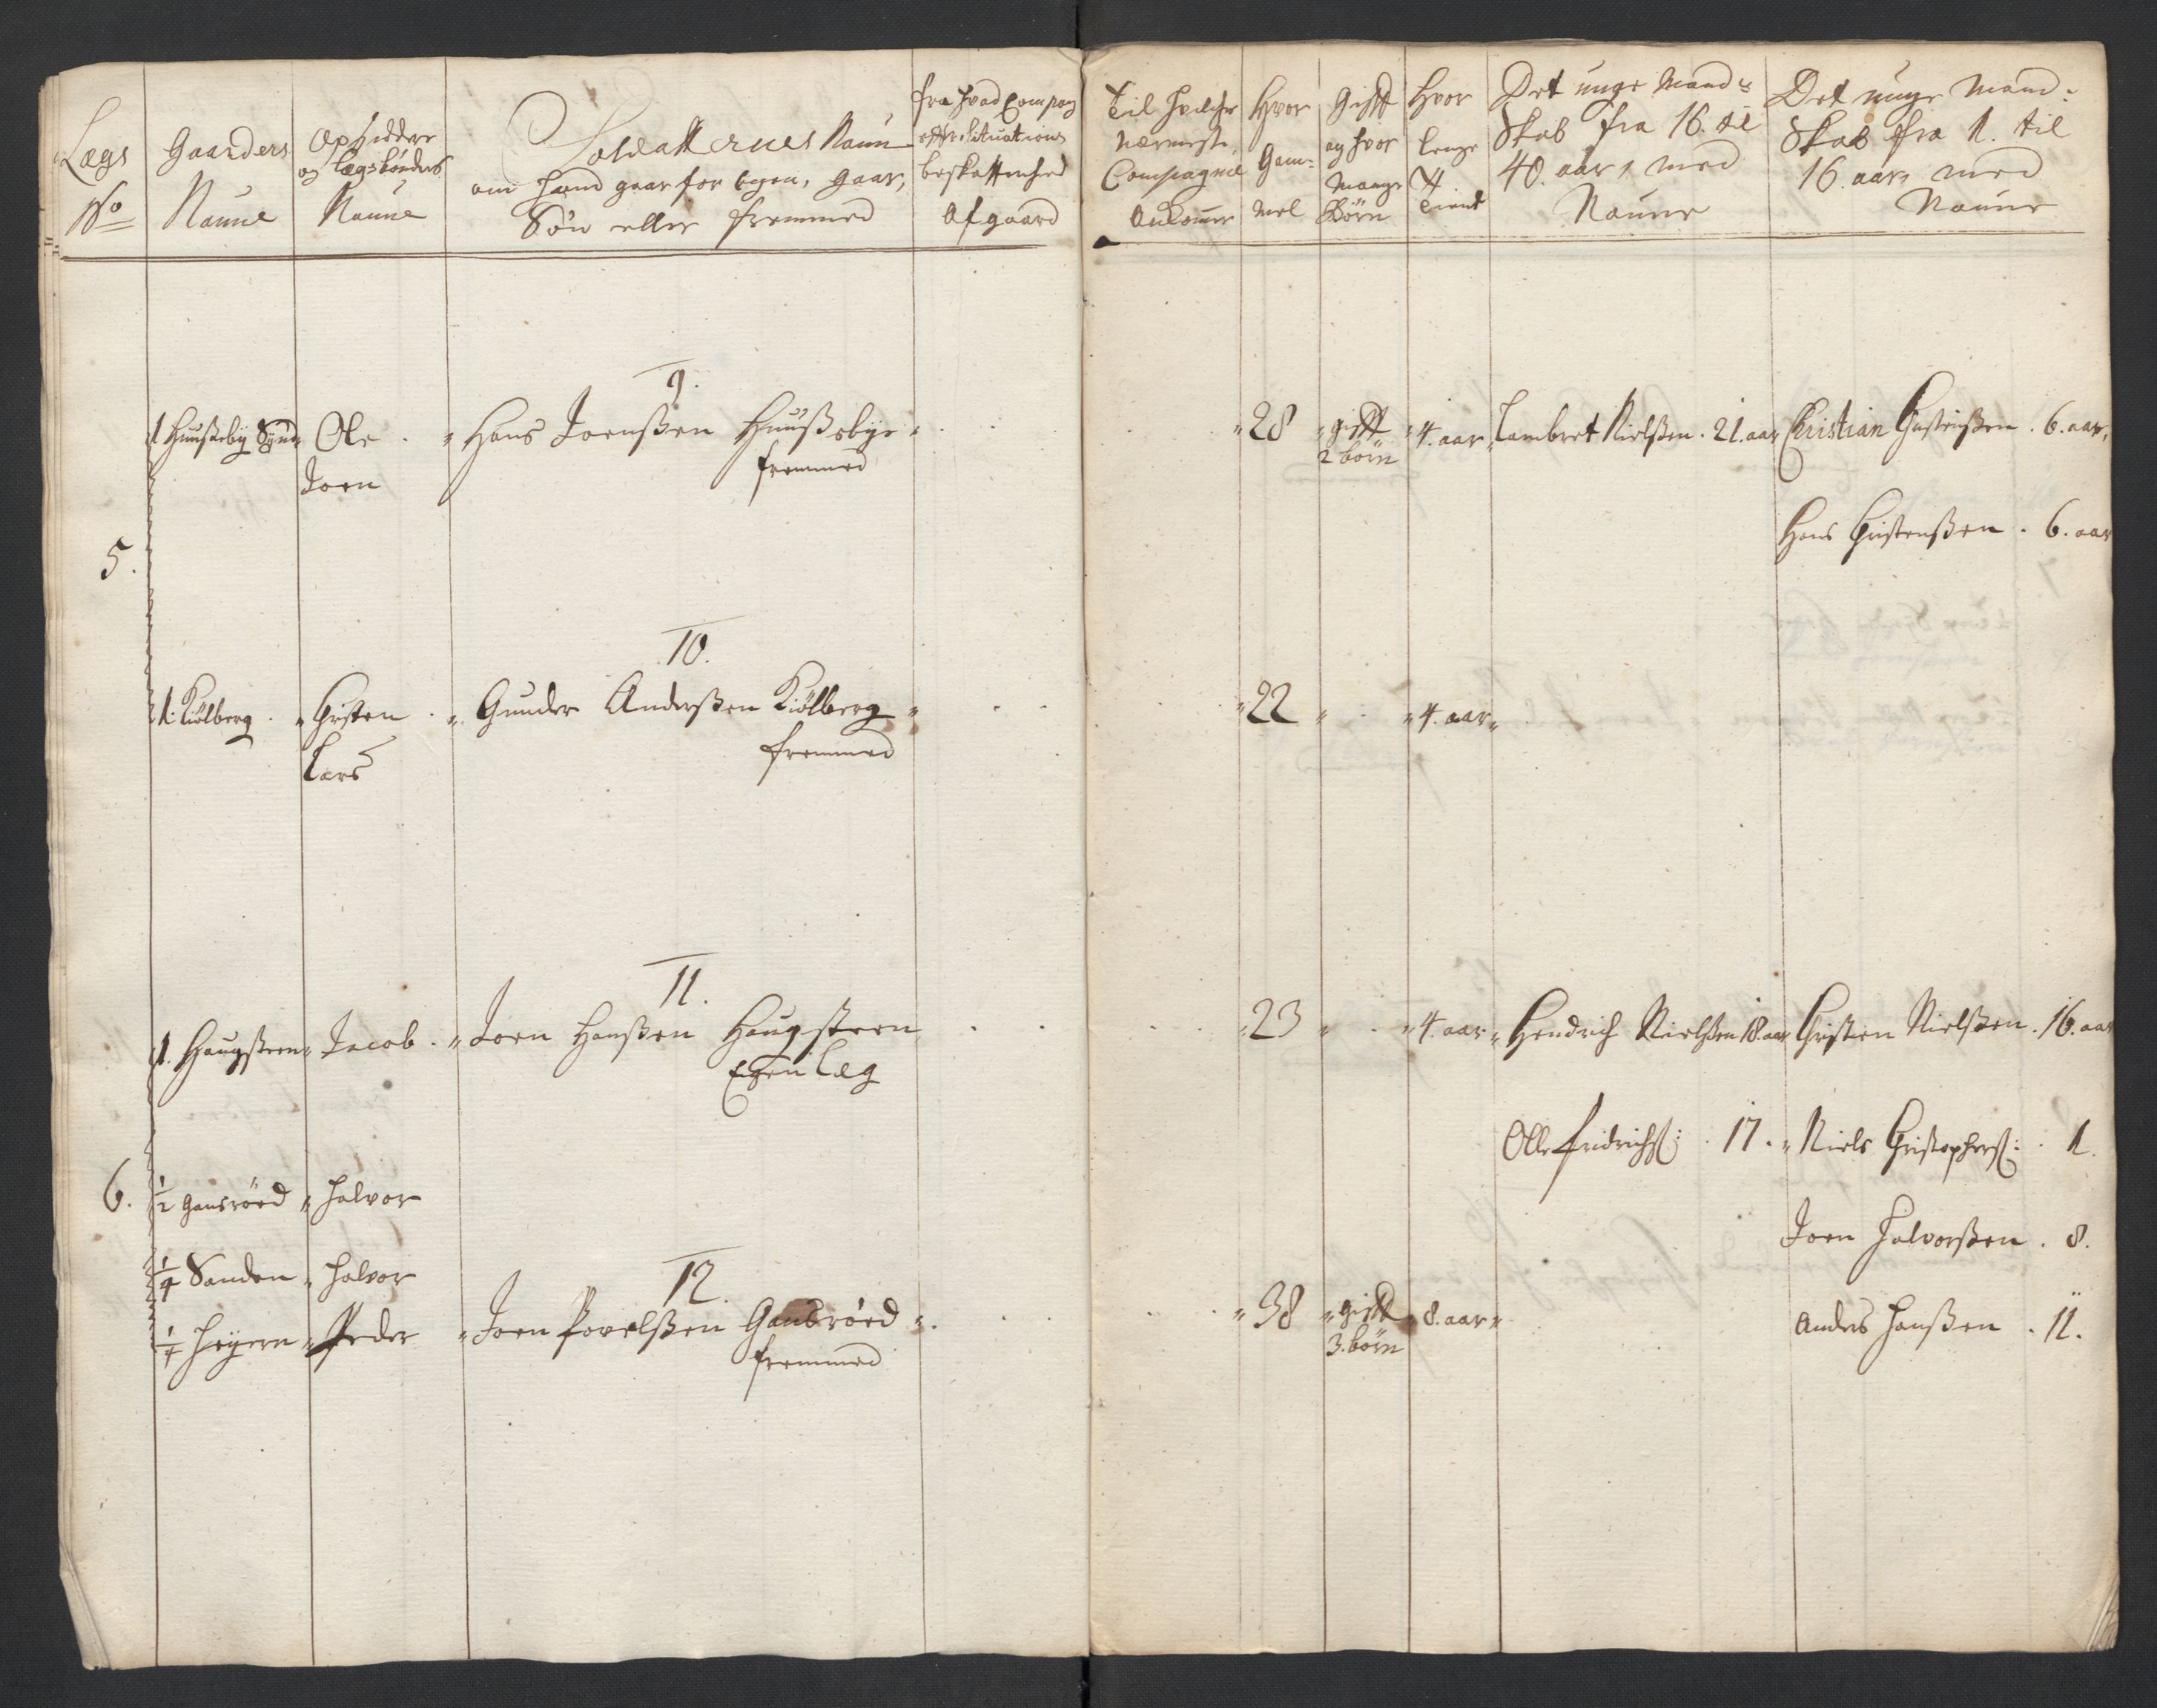 Lægs
No
Gaarders
Naune
Opsiddere
og Lægsbønders
Naune
Soldatternes Naun
om hand gaar for Egen, gaar,
Søn eller fremmed
fra hvad Compag
efter Situations
beskaffenhed
Afgaard
Til hvilche
nærmeste
Compagnie
Ankomer
Hvor
Gam-
mel
Gifft
og hvor
mange
Børn
Hvor
lenge
tient
Det unge Mand-
skab fra 16. til
40. aar, med
Naune
Det unge Mand-
skab fra 1. til
16. aar, med
Naune
9.
1 Huusebÿ Synd
Ole
Joen
Hans Joenßen Huußebye
fremmed
28
gifft
2 børn
4. aar
Lambret Nielßen . 21. aar
Christian Gustenßen . 6. aar,
Hans Christenßen . 6. aar
5.
10.
1. Kiölberg
Christen
Lars
Gunder Anderßen Kiölberg
fremmed
22
4. aar
11.
1. Haugsteen
Jacob
Joen Hanßen Haugsteen
Egen Læg
23
4. aar
Hendrich Nielßen 18. aar
Christen Nielßen . 16. aar
Olle fridrichs: . 17.
Niels Christophers: . 1.
6.
1/2 Gansröed
Halvor
Joen Halvorßen . 8.
1/4 Sanden
Halvor
12.
1/4
Peder
Joen Povelßen Gansröed
fremmed
38
gifft
3. børn
8. aar
Anders Hanßen . 11.